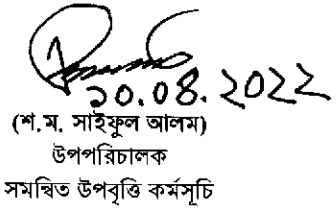 ১০.০৪.২০২২
(শ.ম. সাইফুল আলম)
উপপরিচালক
সমন্বিত উপবৃত্তি কর্মসূচি